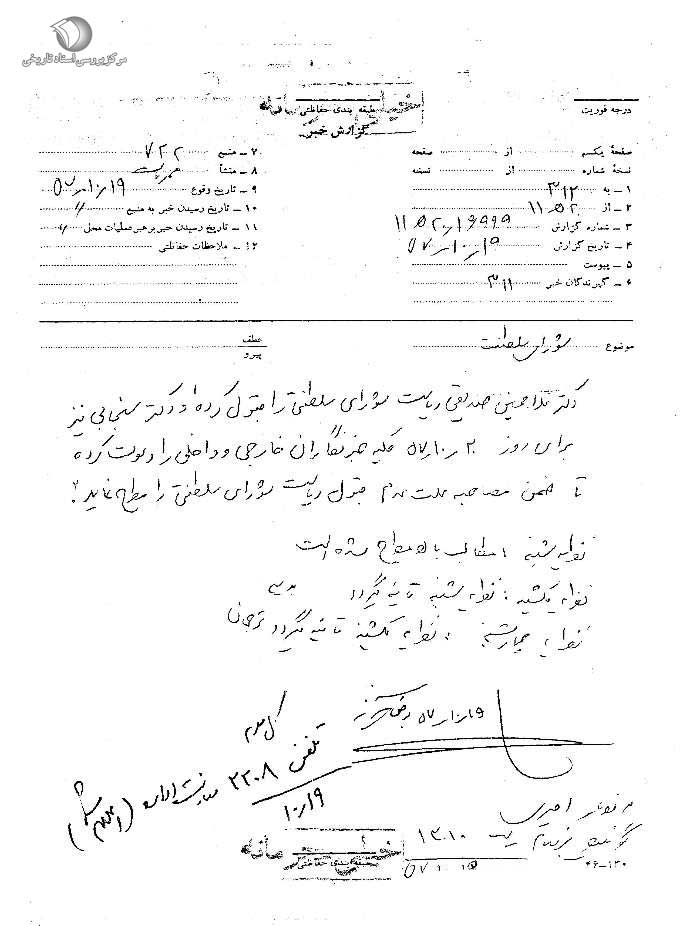 مرکز بررسی اسناد تاریخی
خیلی محرمانه
طبقه بندی حفاظتی
گزارش خبر
درجه فوریت
صفحهٔ یکم از صفحه
نسخهٔ شماره از نسخه
۱ – به ۳۱۲
۲ – از ۱۱ ه‍ ۲۰
۳ – شماره گزارش
۴ – تاریخ گزارش ۵۷٫۱۰٫۱۹
۵ – پیوست
۶ – گیرندگان خبر ۳۱۱
۷ – منبع ۷۲۲
۸ – منشأ
۹ – تاریخ وقوع ۵۷٫۱۰٫۱۹
۱۰ – تاریخ رسیدن خبر به منبع "
۱۱ – تاریخ رسیدن خبر برهبرعملیات محل "
۱۲ – ملاحظات حفاظتی
موضوع شورای سلطنت
عطف
پیرو
دکتر غلامحسین صدیقی ریاست شورای سلطنتی را قبول کرده و دکتر سنجابی نیز
برای روز ۲۰٫۱۰٫۵۷ کلیه خبرنگاران خارجی و داخلی را دعوت کرده
تا ضمن مصاحبه علت عدم قبول ریاست شورای سلطنتی را مطرح نماید.
نظریه شنبه : مطالب بالا مطرح شده است
نظریه یکشنبه : نظریه شنبه تائید میگردد
نظریه چهارشنبه : نظریه یکشنبه تائید میگردد
۵۷٫۱۰٫۱۹
تلفنی ۳۳۰۸
۱۰٫۱۹
۱۳۱۰
۵۷٫۱۰
خیلی محرمانه
طبقه بندی حفاظتی
۴۶–۱۳۰